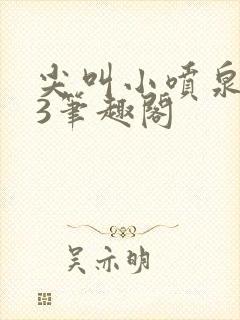 尖叫小喷泉
3笔趣阁
吴亦明